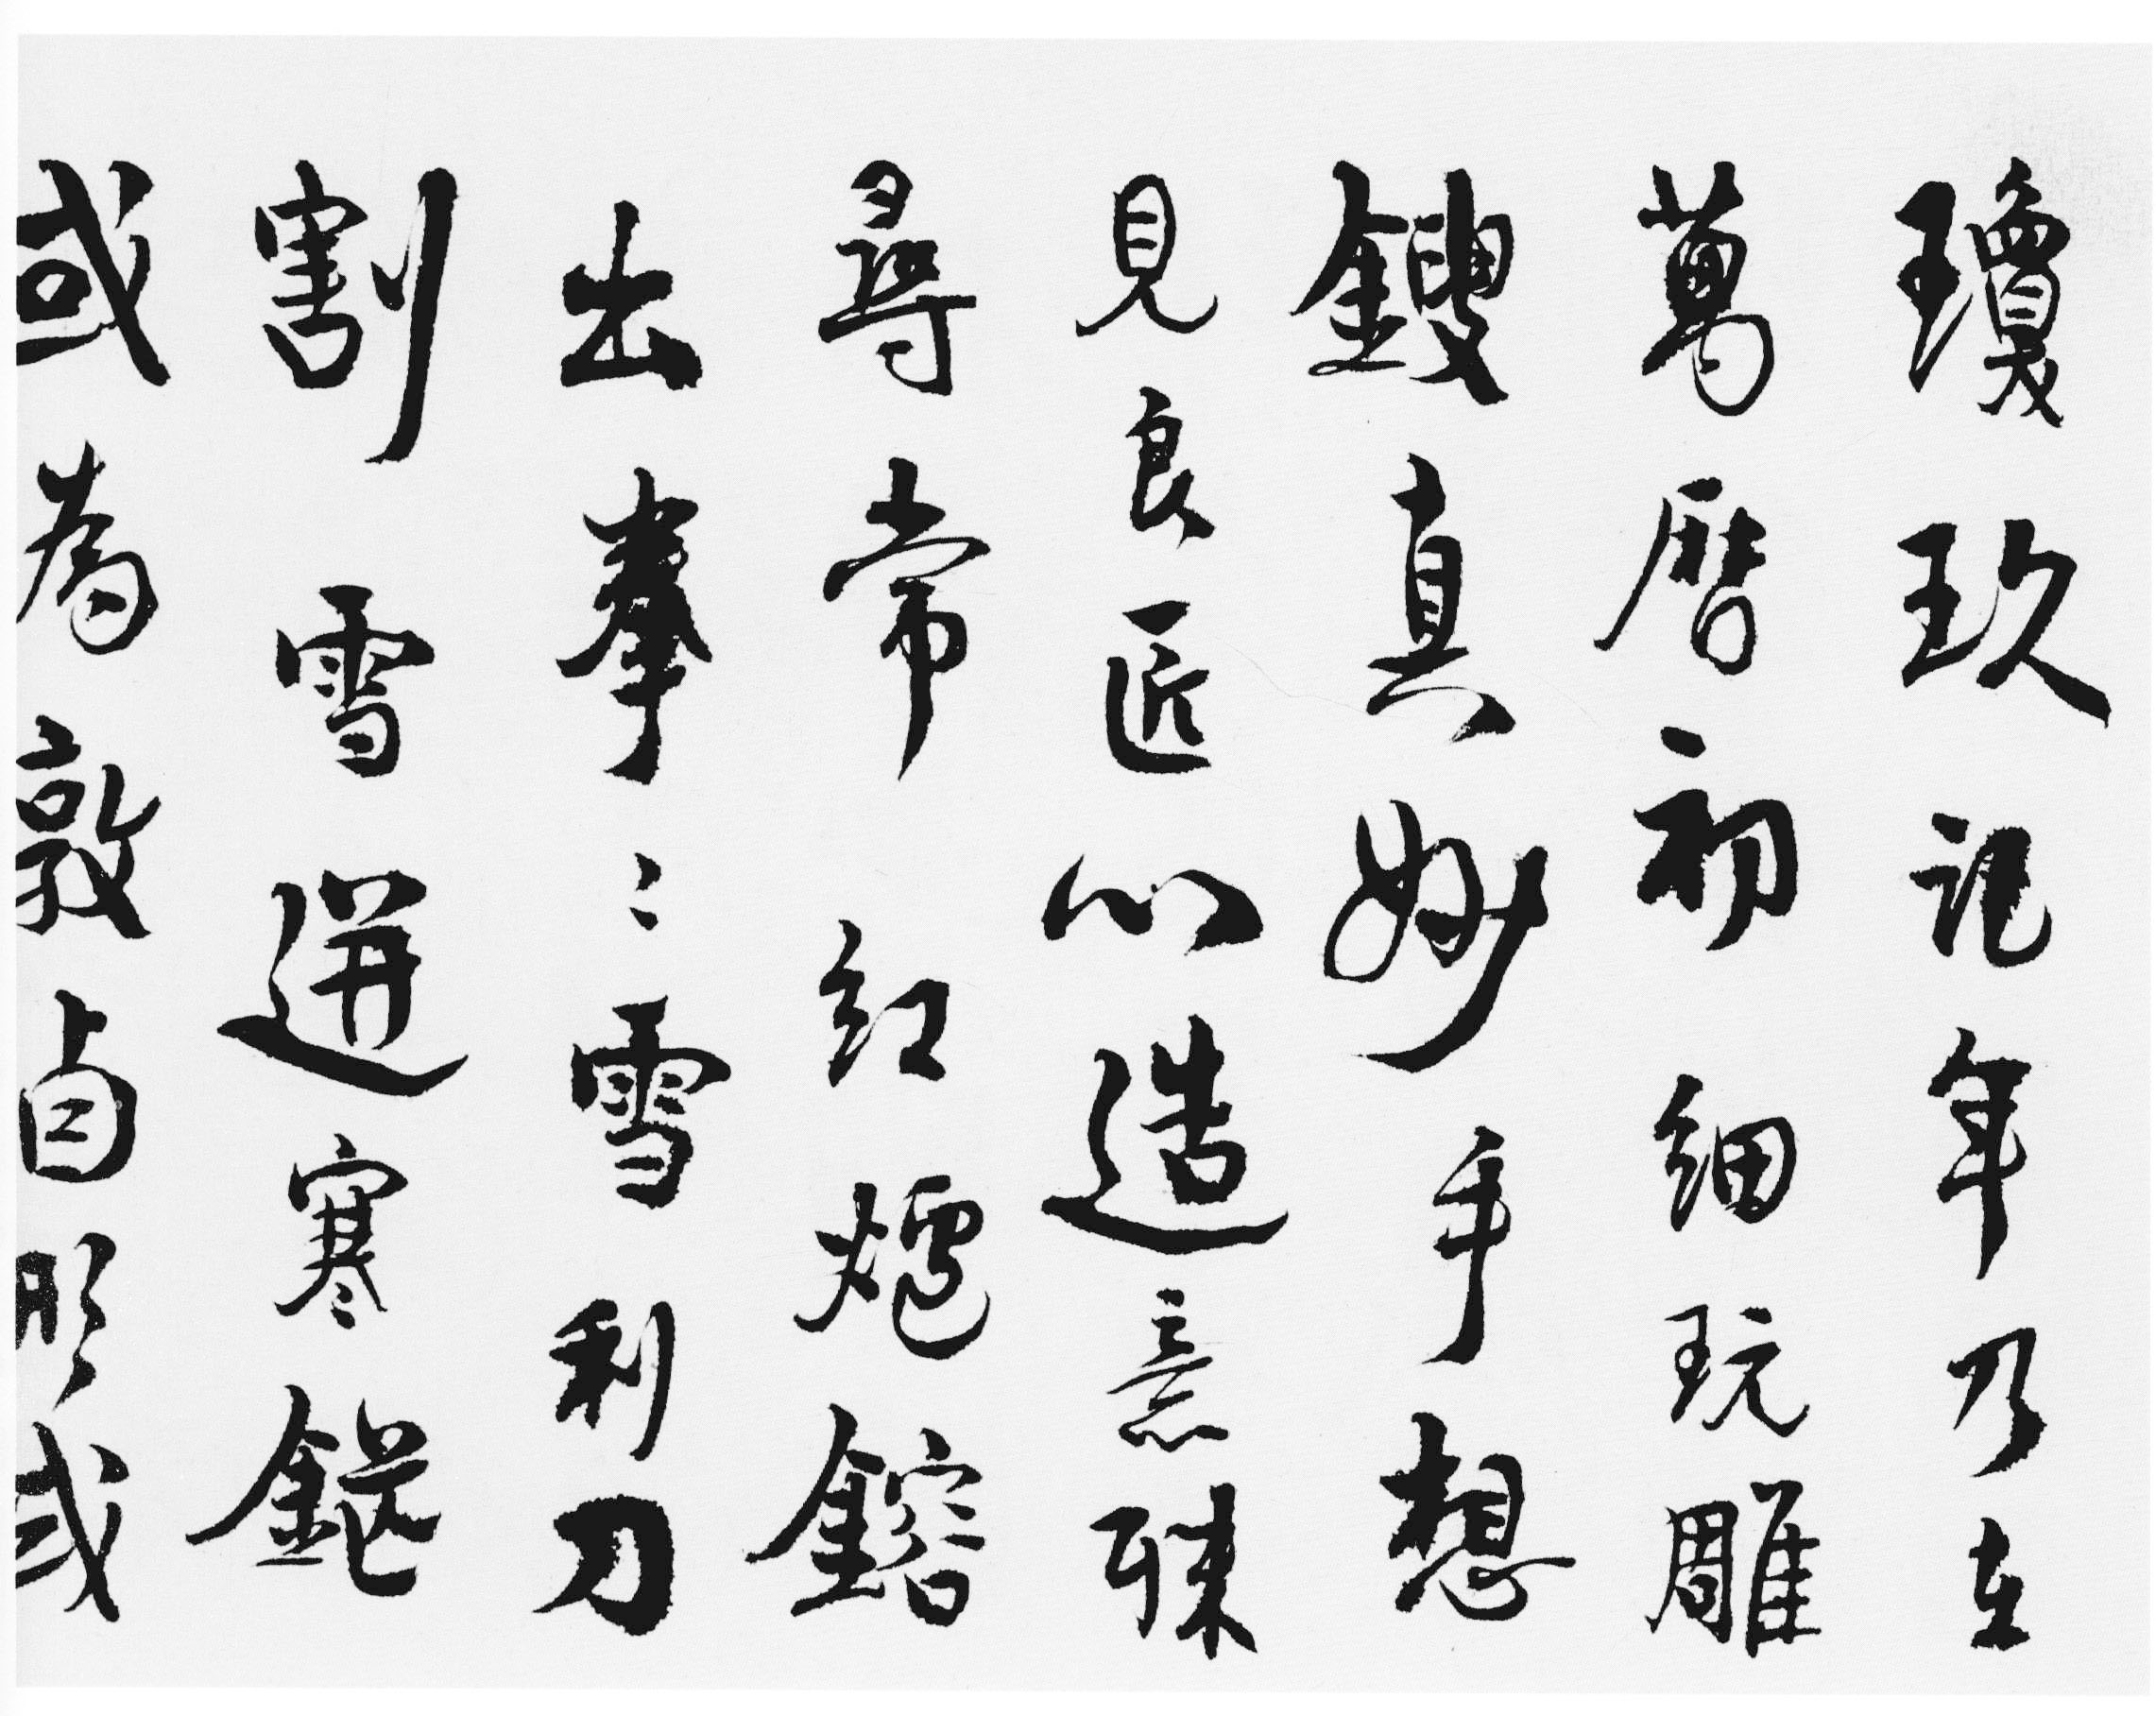 瓊玖記年乃在
萬曆初細玩雕
鎪真妙手想
見良匠心造意殊
尋常紅爐鎔
出拳〻雪利刀
割雪迸寒鋩
或為敦卣形或